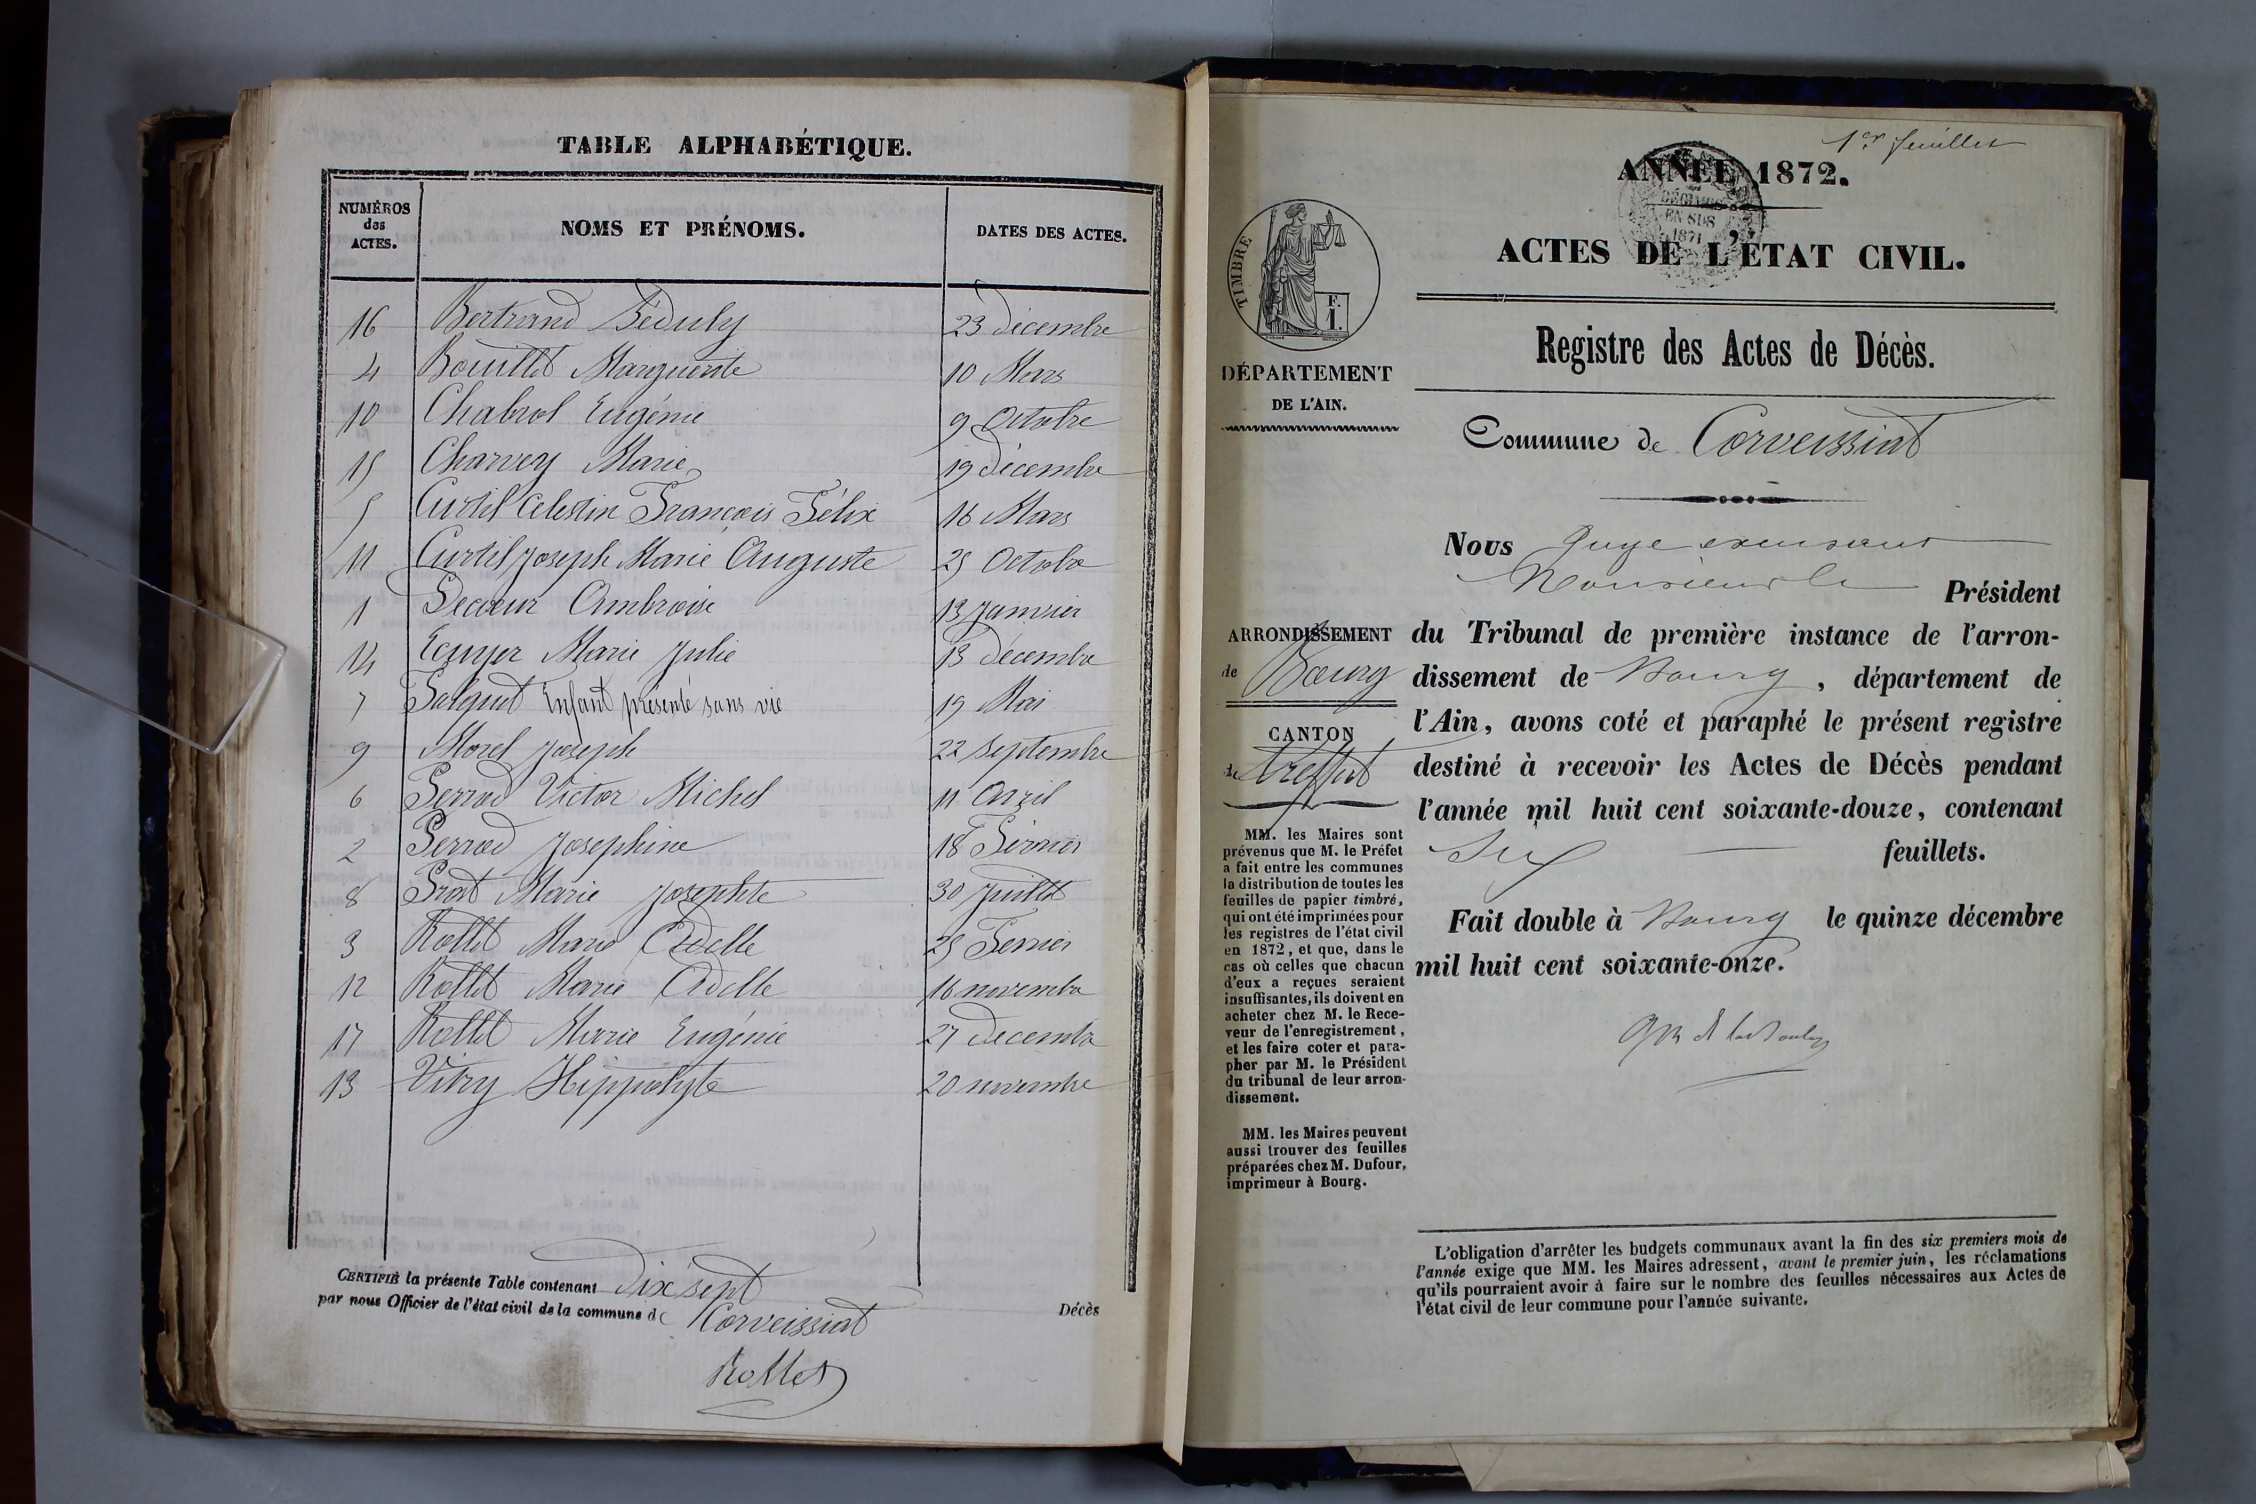 TABLE ALPHABÉTIQUE.
NUMÉROS des ACTES.
NOMS ET PRÉNOMS.
DATES DES ACTES.
16 Bertrand 23 décembre
4 Bouillet Marguerite 10 Mars
10 Chabrol Eugénie 9 Octobre
15 Charvey Marie 19 décembre
5 Curtil Celestin François Félix 16 Mars
11 Curtil Joseph Marie Auguste 25 Octobre
1 Decœur Ambroise 13 Janvier
14 Ecuyer Marie Julie 13 décembre
7 Falquet Enfant présenté sans vie 19 Mai
9 Morel Joseph 22 Septembre
6 Perrod Victor Michel 11 Avril
2 Perrod Josephine 18 Février
8 Prost Marie Josephte 30 Juillet
3 Rollet Marie Adelle 25 Fevrier
12 Rollet Marie Adelle 16 novembre
17 Rollet Marie Eugénie 27 Decembre
13 Vitry Hippolyte 20 novembre
CERTIFIÉ la présente Table contenant Dix sept Décès
par nous Officier de l'état civil de la commune de Corveissiat
Rollet
1er feuillet
ANNÉE 1872.
DÉCIMES
EN SUS
1871
ACTES DE L'ÉTAT CIVIL.
TIMBRE
F.
1.
Registre des Actes de Décès.
DÉPARTEMENT
DE L'AIN.
Commune de Corveissiat
Nous Juge
Monsieur le Président
ARRONDISSEMENT
de Bourg
CANTON
de Treffort
du Tribunal de première instance de l'arron-
dissement de Bourg, département de
l'Ain, avons coté et paraphé le présent registre
destiné à recevoir les Actes de Décès pendant
l'année mil huit cent soixante-douze, contenant
Six feuillets.
Fait double à Bourg le quinze décembre
mil huit cent soixante-onze.
MM. les Maires sont
prévenus que M. le Préfet
a fait entre les communes
la distribution de toutes les
feuilles de papier timbré,
qui ont été imprimées pour
les registres de l'état civil
en 1872, et que, dans le
cas où celles que chacun
d'eux a reçues seraient
insuffisantes, ils doivent en
acheter chez M. le Rece-
veur de l'enregistrement,
et les faire coter et para-
pher par M. le Président
du tribunal de leur arron-
dissement.
MM. les Maires peuvent
aussi trouver des feuilles
préparées chez M. Dufour,
imprimeur à Bourg.
L'obligation d'arrêter les budgets communaux avant la fin des six premiers mois de
l'année exige que MM. les Maires adressent, avant le premier juin, les réclamations
qu'ils pourraient avoir à faire sur le nombre des feuilles nécessaires aux Actes de
l'état civil de leur commune pour l'année suivante.